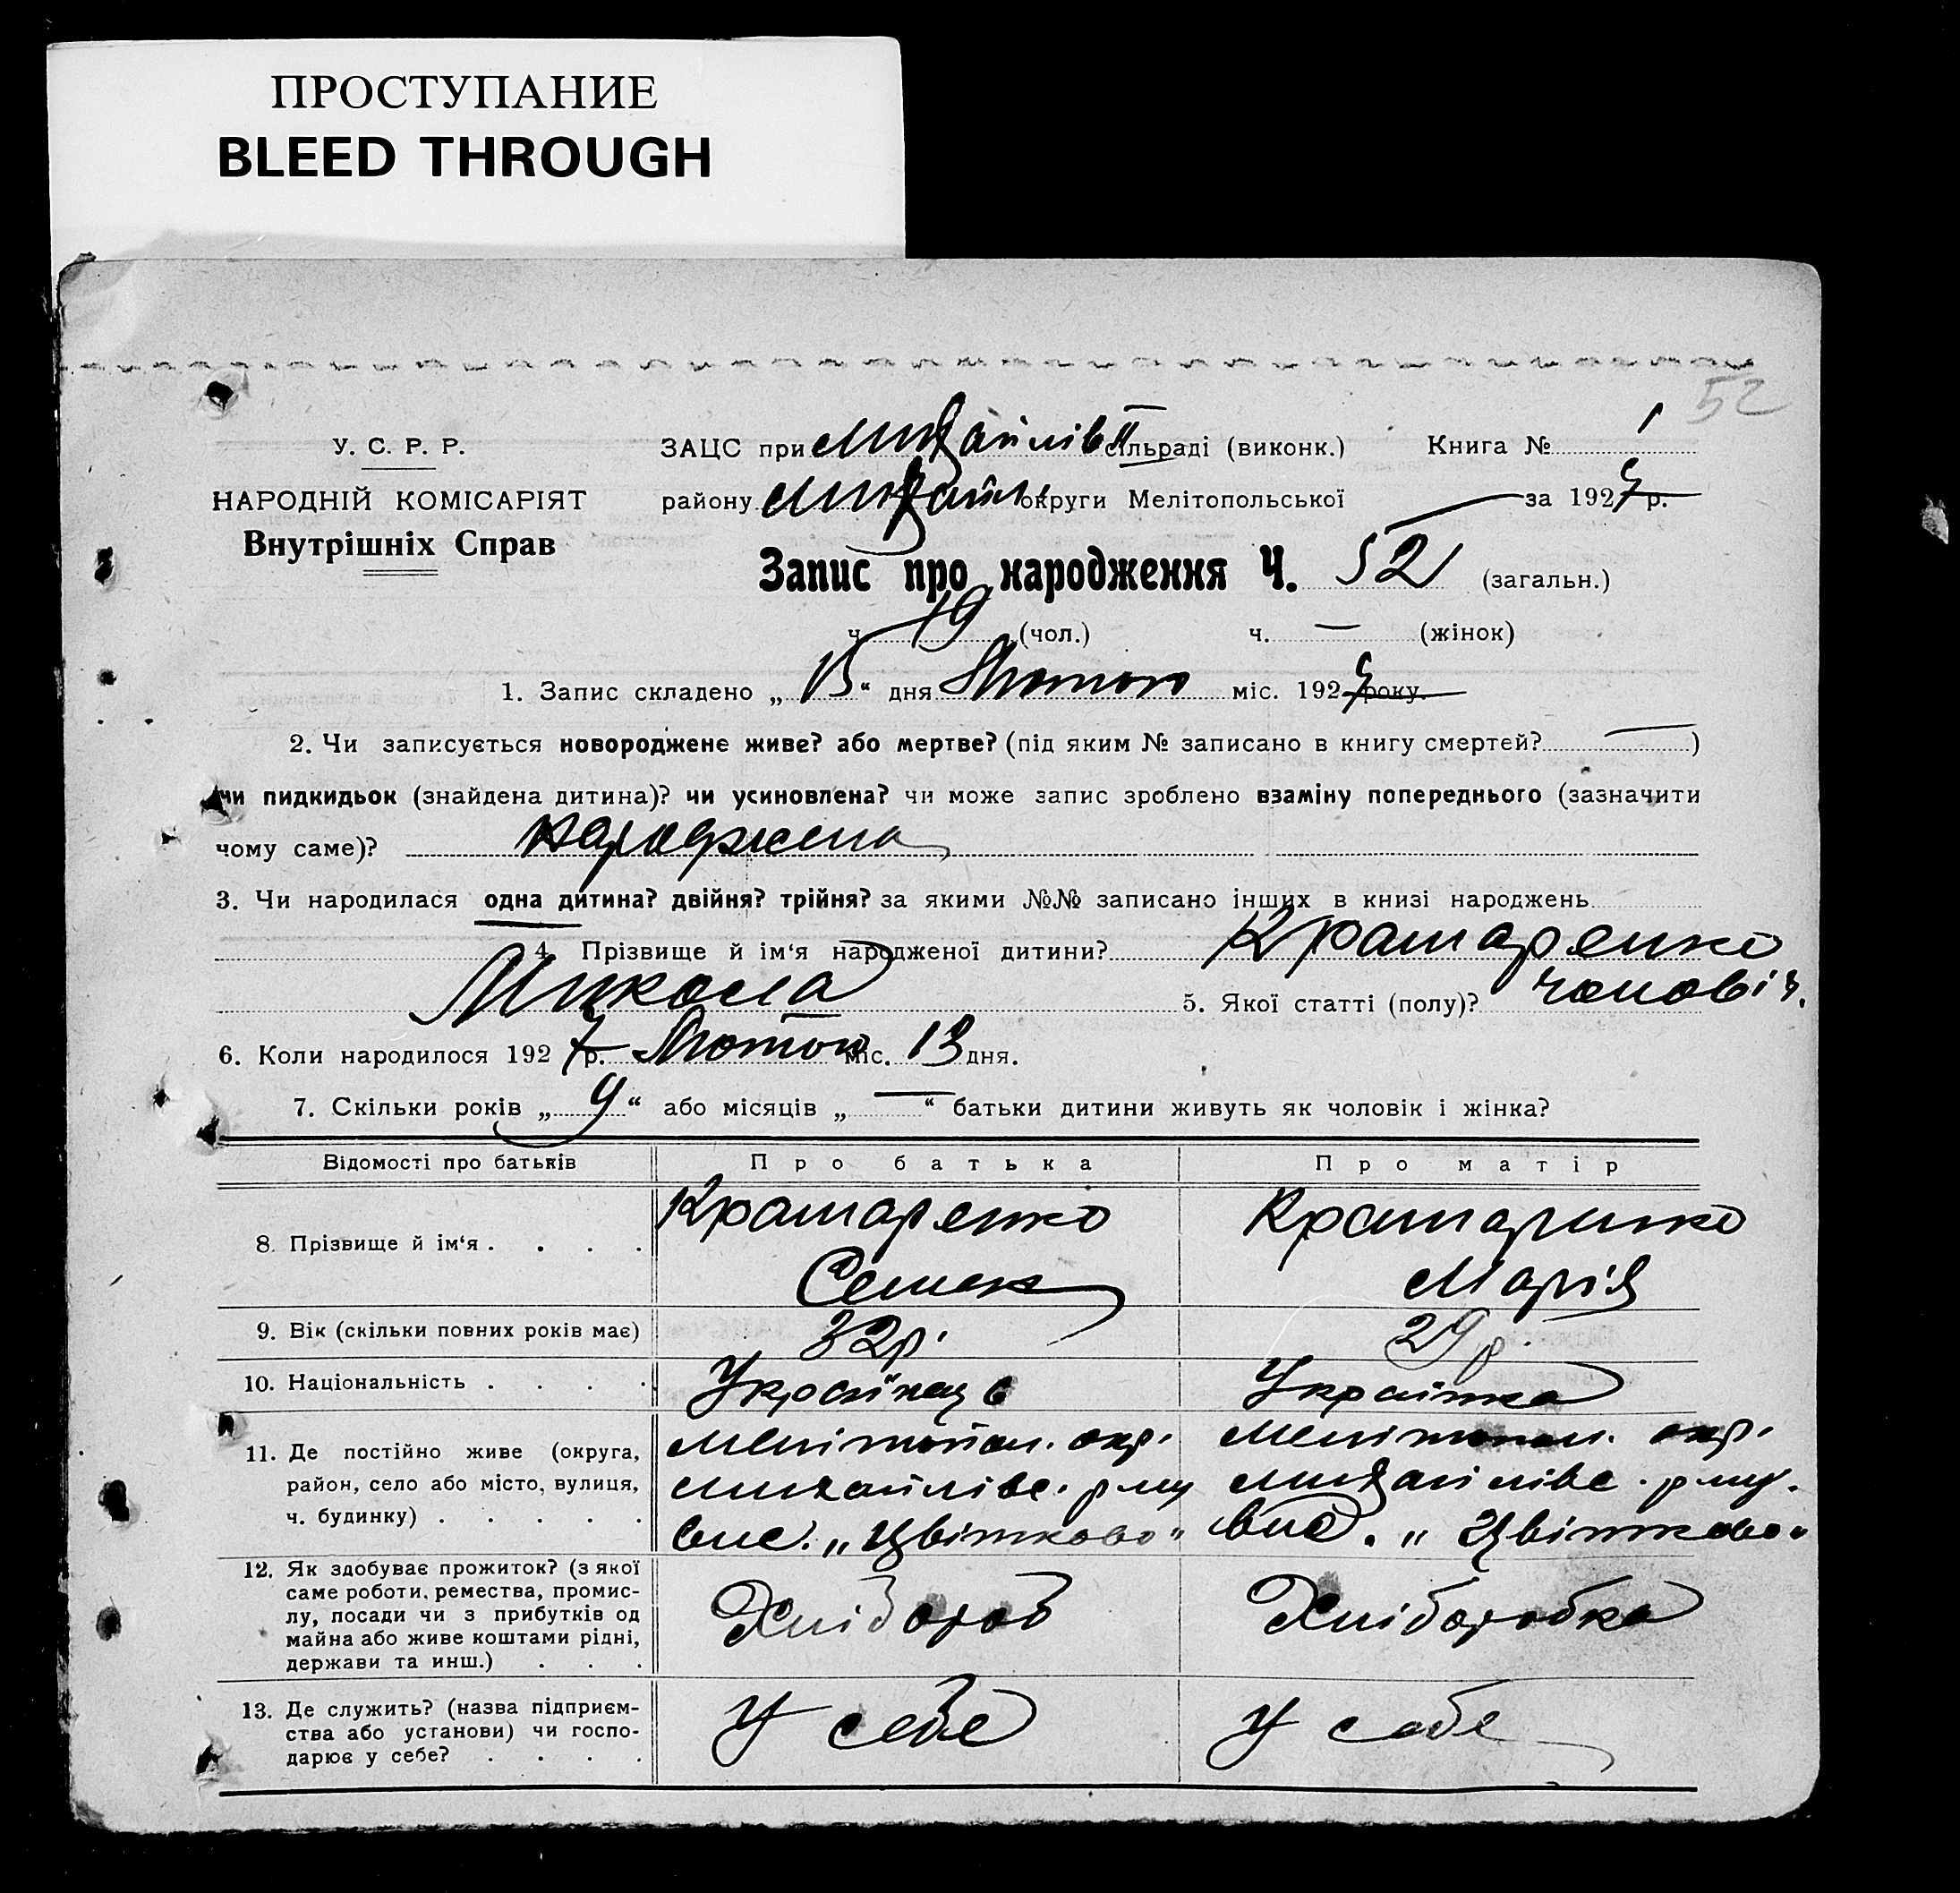 ПРОСТУПАНИЕ
BLEED THROUGH
52
У. С. Р. Р.
НАРОДНІЙ КОМІСАРІЯТ
Внутрішніх Справ
ЗАЦС при Михайлівській сільраді (виконк.) Книга № 1
району Михайл. округи Мелітопольської за 1927 р.
Запис про народження Ч. 52 (загальн.)
ч. 19 (чол.) ч. — (жінок)
1. Запис складено „15“ дня Лютого міс. 1927 року.
2. Чи записується новороджене живе? або мертве? (під яким № записано в книгу смертей? —)
чи пидкидьок (знайдена дитина)? чи усиновлена? чи може запис зроблено взаміну попереднього (зазначити
чому саме)? народжена
3. Чи народилася одна дитина? двійня? трійня? за якими №№ записано інших в книзі народжень
4. Прізвище й ім‘я народженої дитини? Крамаренко
Микола 5. Якої статті (полу)? чоловіч.
6. Коли народилося 1927 р. Лютого міс. 13 дня.
7. Скільки років „9“ або місяців „—“ батьки дитини живуть як чоловік і жінка?
Відомості про батьків Про батька Про матір
8. Прізвище й ім‘я . . . . Крамаренко Крамаренко
Семен Марія
9. Вік (скільки повних років має) 32 р. 29 р.
10. Національність . . . . Українець Українка
11. Де постійно живе (округа, Мелітопол. окр. Мелітопол. окр.
район, село або місто, вулиця, Михайлівс. р-ну Михайлівс. р-ну.
ч. будинку) . . . . . вис. „Цвітково“ вис. „Цвітково“
12. Як здобуває прожиток? (з якої
саме роботи, ремества, промис-
лу, посади чи з прибутків од Хлібороб Хліборобка
майна або живе коштами рідні,
держави та инш.) . . .
13. Де служить? (назва підприєм-
ства або установи) чи госпо- У себе У себе
дарює у себе? . . . .